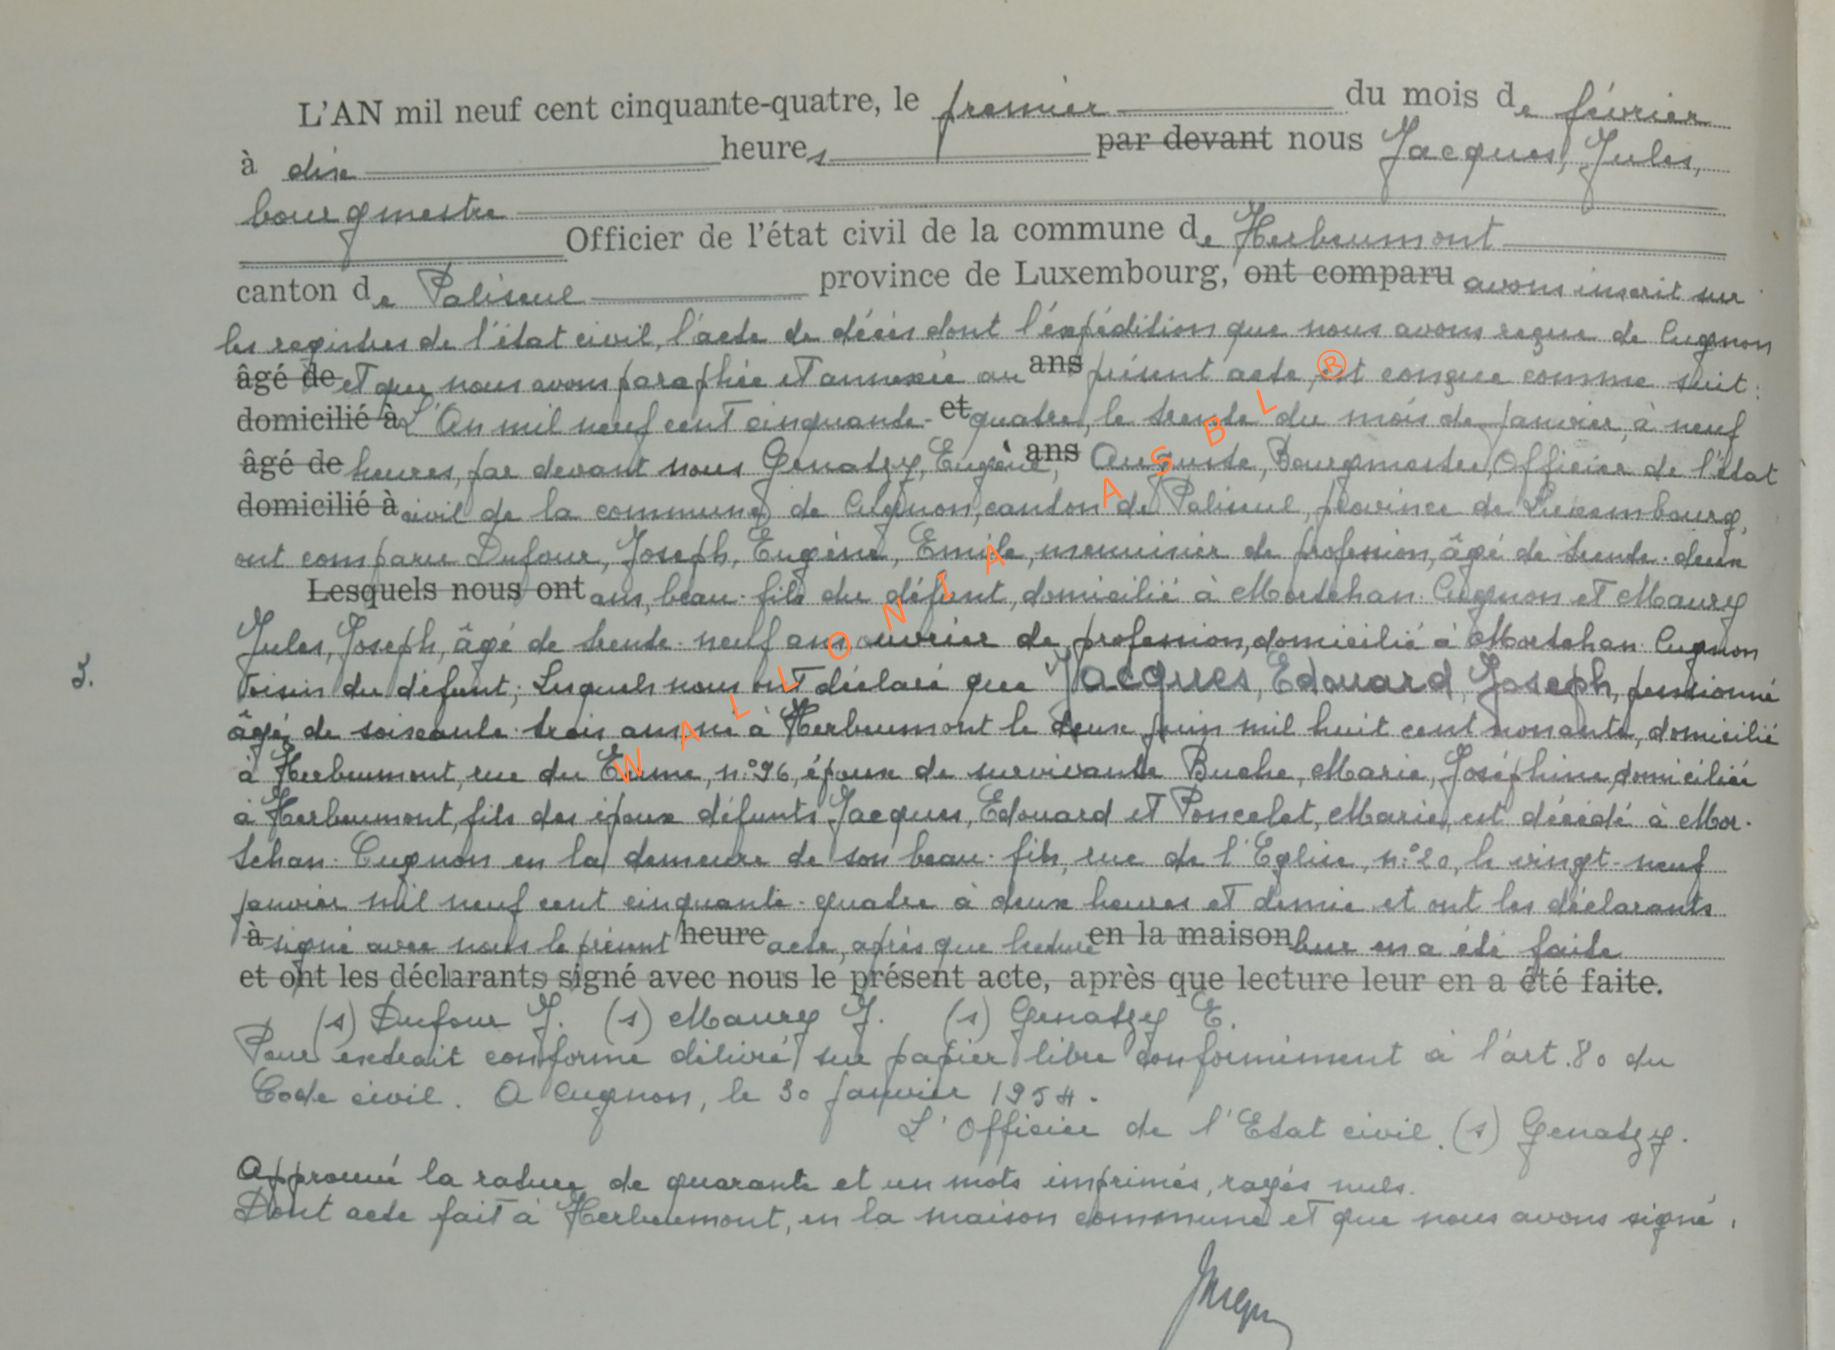 L'AN mil neuf cent cinquante-quatre, le premier du mois de février
à dix heures par devant nous Jacques, Jules,
bourgmestre
Officier de l'état civil de la commune de Herbeumont
canton de Paliseul province de Luxembourg, ont comparu avons inscrit sur
les registres de l'état civil, l'acte de décès dont l'expédition que nous avons reçue de Cugnon
âgé de et que nous avons paraphée et annexée au ans présent acte, est conçue comme suit:
domicilié à L'An mil neuf cent cinquante- et quatre, le trente du mois de janvier, à neuf
âgé de heures, par devant nous Genatzy, Eugène, ans Auguste, Bourgmestre, Officier de l'état
domicilié à civil de la commune de Cugnon, canton de Paliseul, province de Luxembourg,
ont comparu Dufour, Joseph, Eugène, Emile, menuisier de profession, âgé de trente-deux
Lesquels nous ont ans, beau-fils du défunt, domicilié à Mortehan-Cugnon et Maury
Jules, Joseph, âgé de trente-neuf ans ouvrier de profession, domicilié à Mortehan-Cugnon
3. voisin du défunt; Lesquels nous ont déclaré que Jacques, Edouard, Joseph, pensionné
âgé de soixante-trois ans né à Herbeumont le deux juin mil huit cent nonante, domicilié
à Herbeumont, rue du n:°96, époux de survivante Buche, Marie, Joséphine, domiciliée
à Herbeumont, fils des époux défunts Jacques, Edouard et Poncelet, Marie, est décédé à Mor-
tehan-Cugnon en la demeure de son beau-fils, rue de l'Eglise, n:°20, le vingt-neuf
janvier mil neuf cent cinquante-quatre à deux heures et demie et ont les déclarants
à signé avec nous le présent heure acte, après que lecture en la maison leur en a été faite
et ont les déclarants signé avec nous le présent acte, après que lecture leur en a été faite.
(s) Dufour J. (s) Maury J. (s) Genatzy E.
Pour extrait conforme délivré sur papier libre conformément à l'art. 80 du
Code civil. A Cugnon, le 30 janvier 1954.
L'Officier de l'Etat civil. (s) Genatzy.
Approuvé la rature de quarante et un mots imprimés, rayés nuls.
Dont acte fait à Herbeumont, en la maison commune et que nous avons signé.
WALLONIA ASBL ®